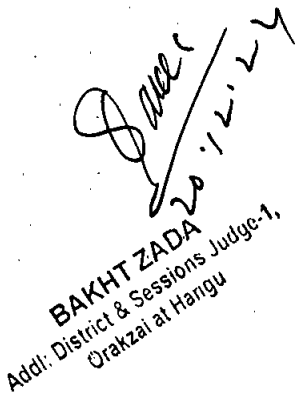 20.12.24
BAKHT ZADA
Addl: District & Sessions Judge-1,
Orakzai at Hangu